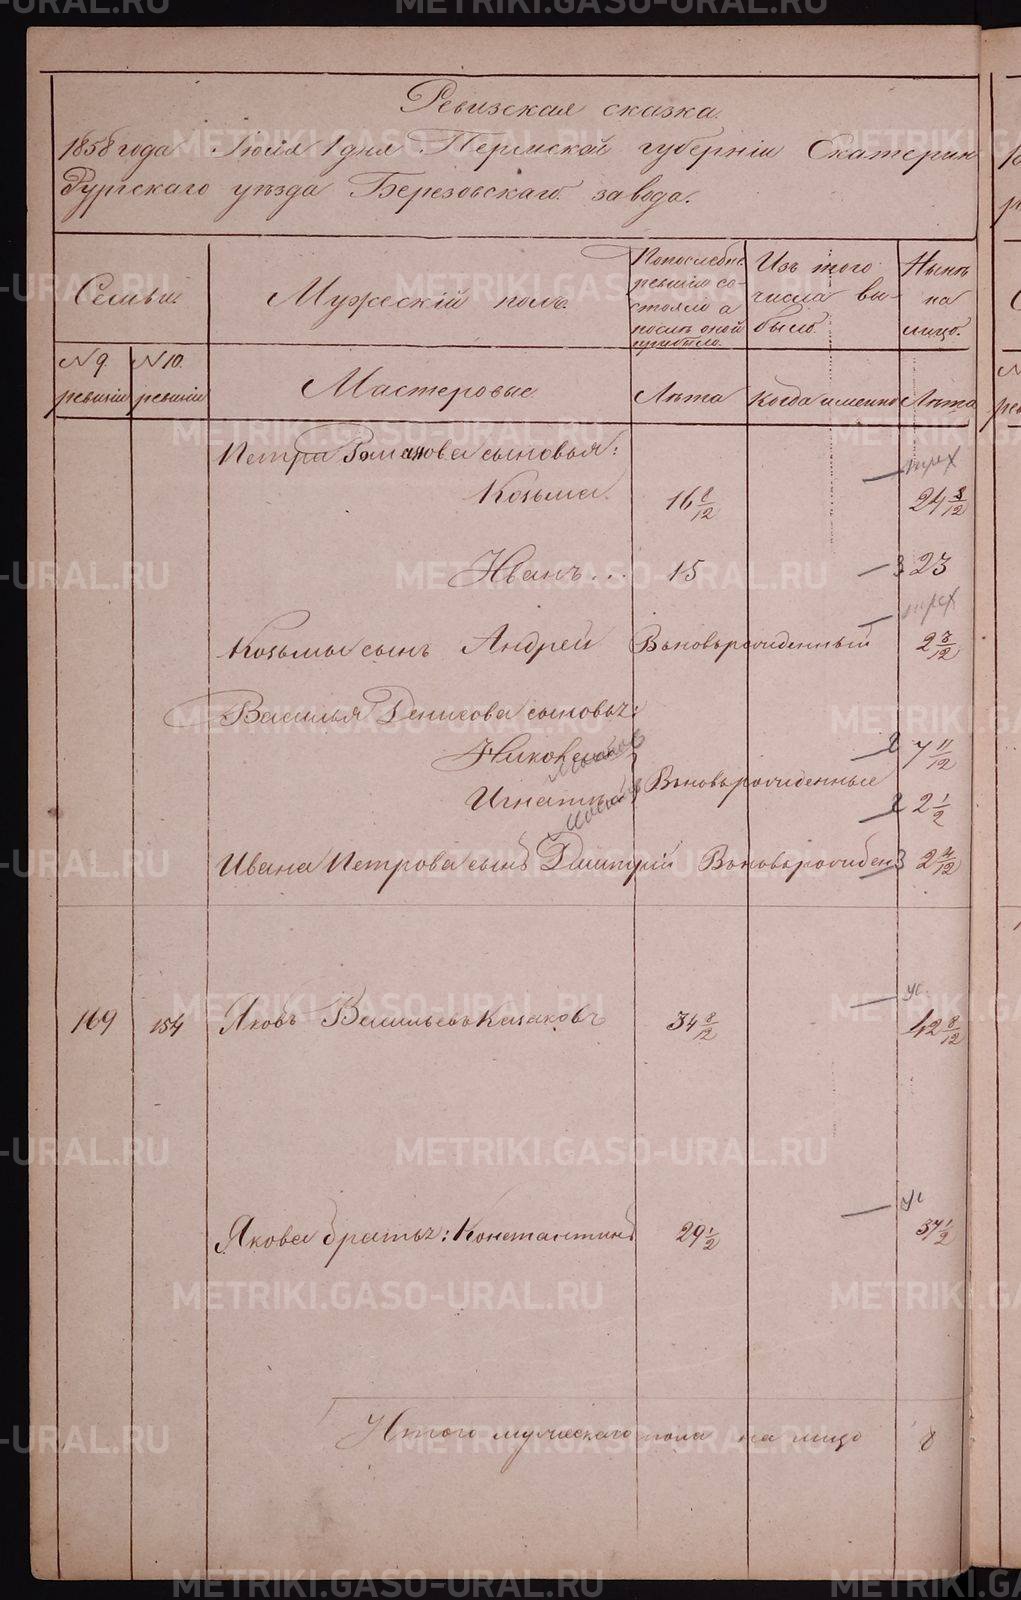 Ревизская сказка.
1858 года Іюля 1 дня Пермской губерніи Екатерин
бургскаго уѣзда Березовскаго завода.
Семьи
Мужескій полъ.
По последнѣ
ревизіи со-
стояло а
послѣ оной
прибыло.
Изъ того
числа вы-
было.
Нынѣ
на
лицо.
№ 9.
ревизіи
№ 10.
ревизіи
Мастеровые
Лѣта
Когда именно
Лѣта
Петра Романова сыновья:
Козьма. 16 8/12 24 8/12
Иванъ... 15 3 23
Козьмы сынъ Андрей Вновьрожденный 2 3/12
Василья Денисова сыновья:
Николай 2 7 11/12
Игнатій Вновьрожденные 2 2 1/2
Ивана Петрова сынъ Дмитрій Вновьрожден 3 2 4/12
169 154 Яковъ Васильевъ Казаковъ 34 8/12 42 8/12
Якова братья: Константинъ 29 1/2 37 1/2
Итого мужескаго пола на лицо 8
METRIKI.GASO-URAL.RU